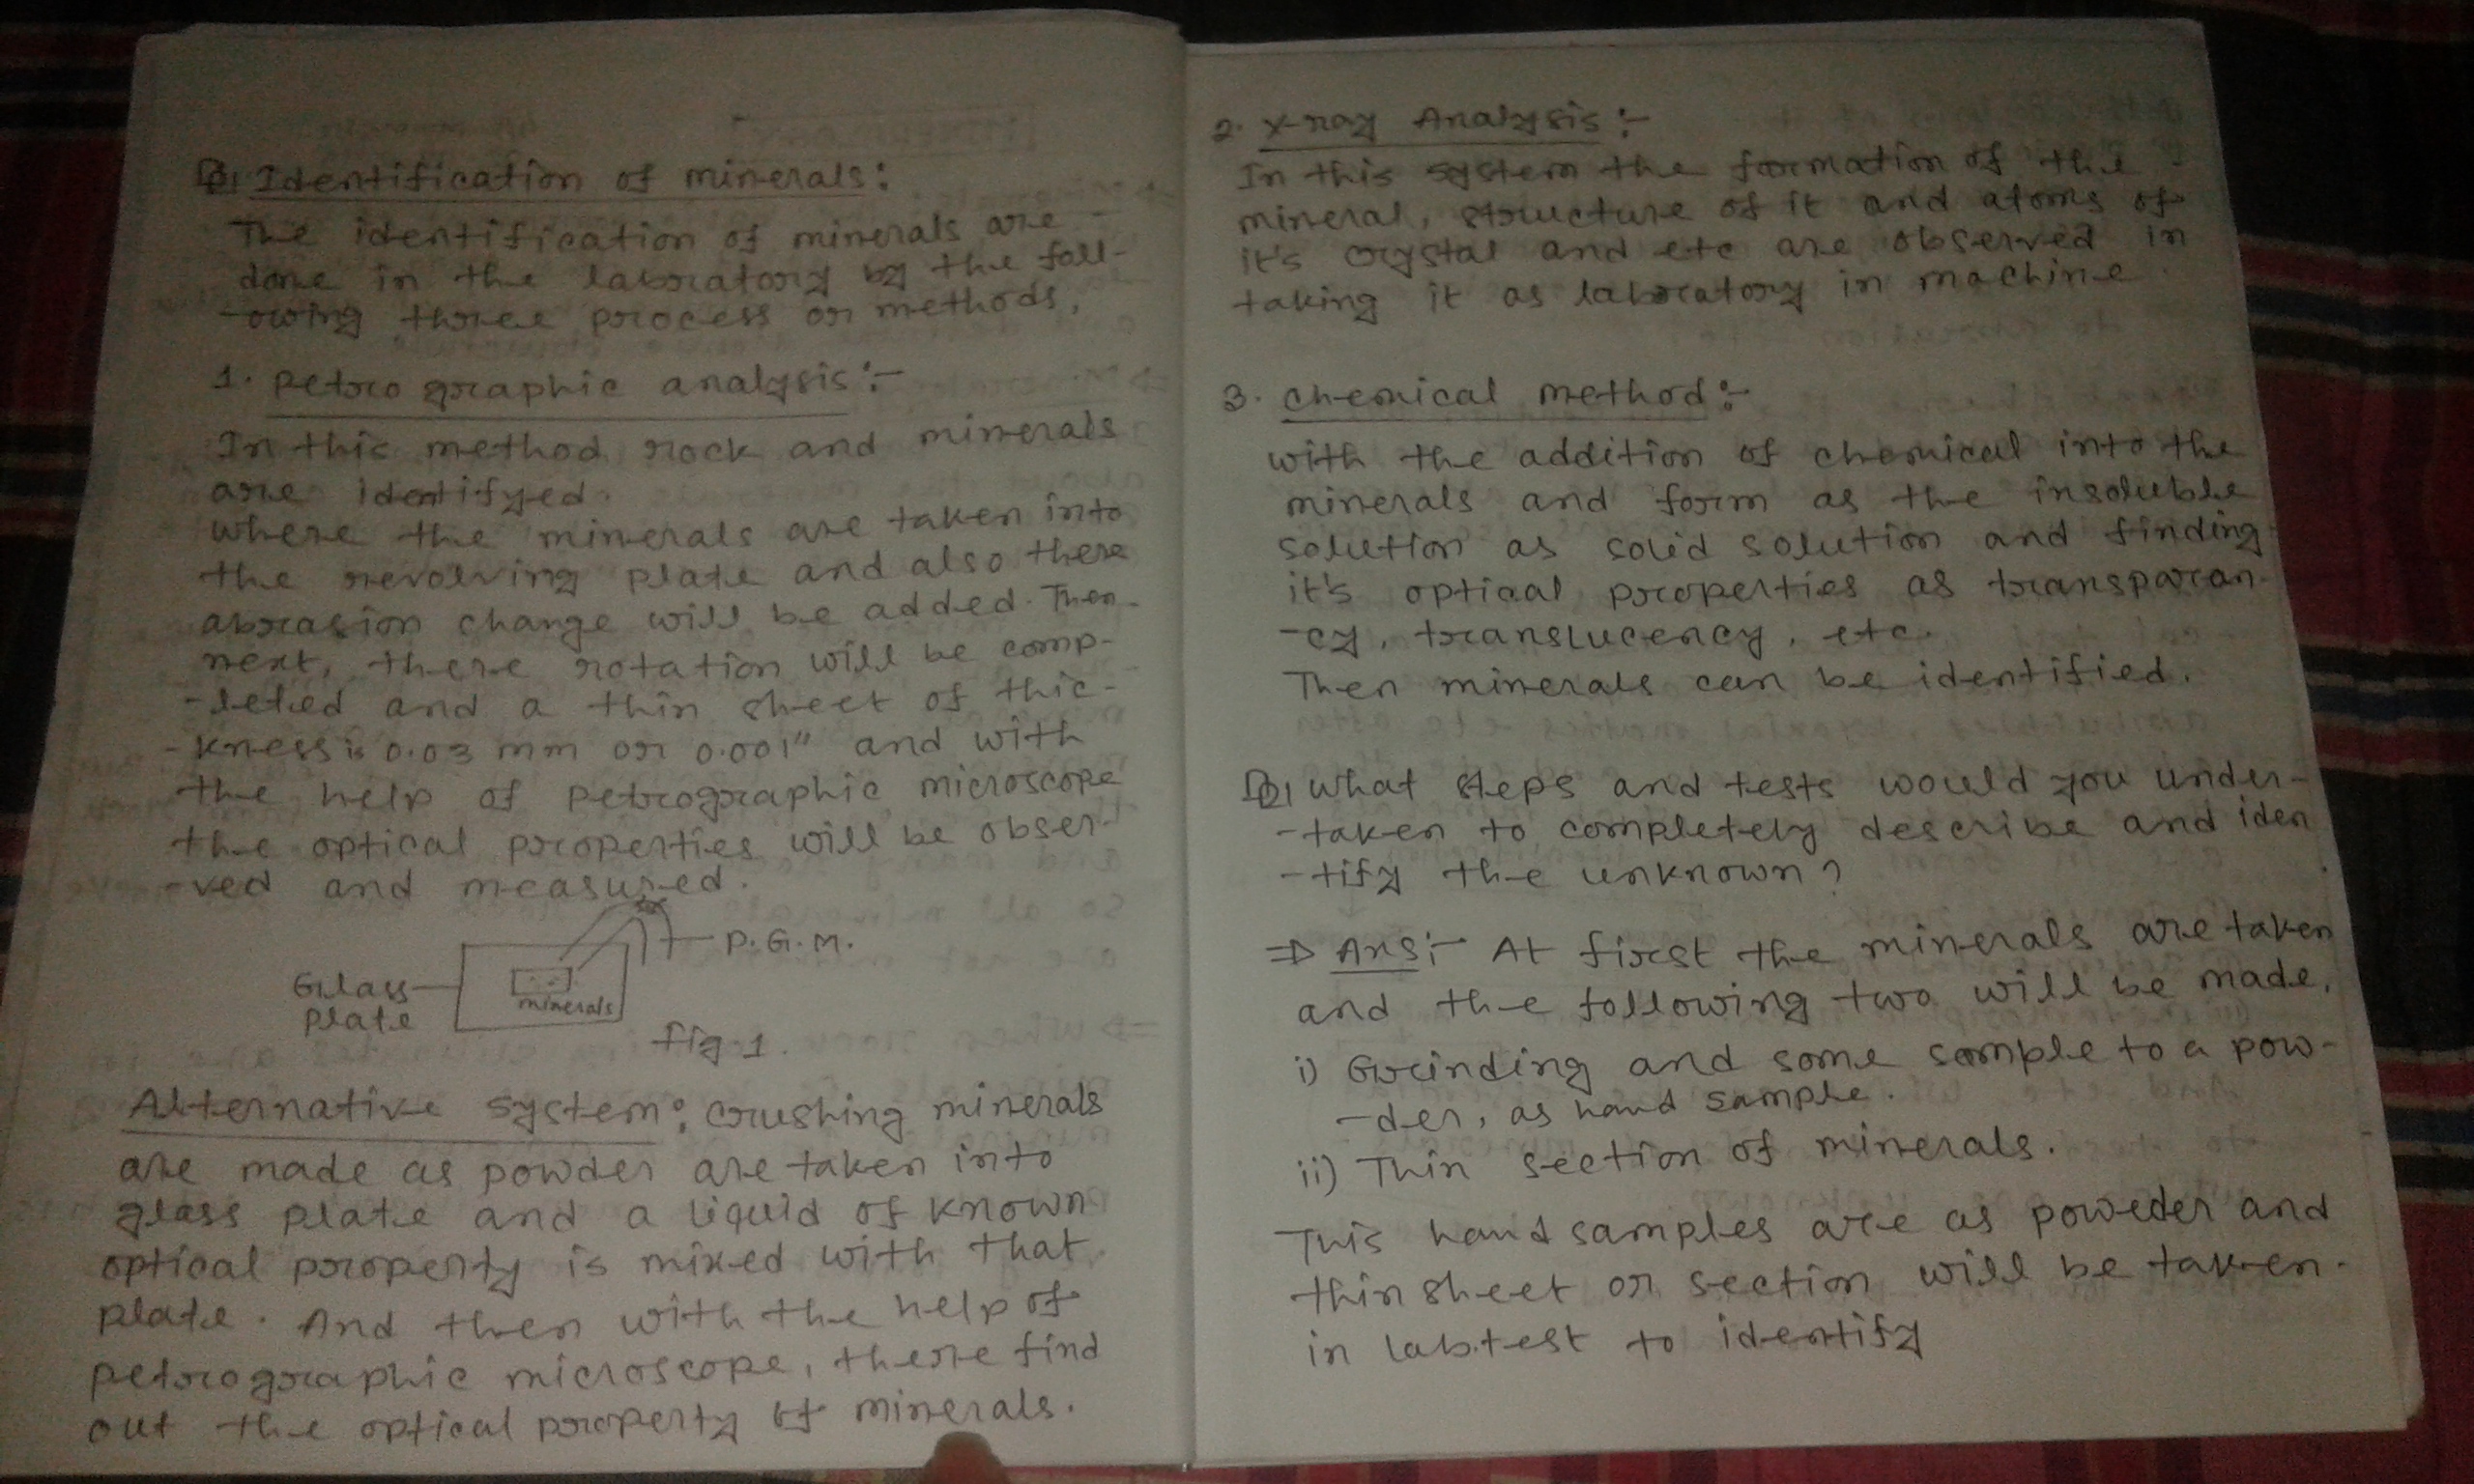 Q1 Identification of minerals:
The identification of minerals are
done in the laboratory by the foll-
-owing three process or methods.
1. Petro graphic analysis:-
In this method rock and minerals
are identifyed.
where the minerals are taken into
the revolving plate and also there
abrasion change will be added. Then
next, there rotation will be comp-
-leted and a thin sheet of thic-
-kness is 0.03 mm or 0.001" and with
the help of petrographic microscope
the optical properties will be obser-
-ved and measured.
P.G.M.
Glass
plate
minerals
fig-1.
Alternative system: crushing minerals
are made as powder are taken into
glass plate and a liquid of known
optical property is mixed with that
plate. And then with the help of
petrographic microscope, there find
out the optical property of minerals.
2. X-ray Analysis:-
In this system the formation of the
mineral, structure of it and atoms of
it's crystal and etc are observed in
taking it as laboratory in machine.
3. chemical method:-
with the addition of chemical into the
minerals and form as the insoluble
solution as solid solution and finding
it's optical properties as transparan-
-cy, translucency, etc.
Then minerals can be identified.
Q1 what steps and tests would you under-
-taken to completely describe and iden
-tify the unknown?
⇒ Ans:- At first the minerals are taken
and the following two will be made.
i) Grinding and some sample to a pow-
-der, as hand sample.
ii) Thin section of minerals.
This hand samples are as poweder and
thin sheet or section will be taken.
in lab.test to identify